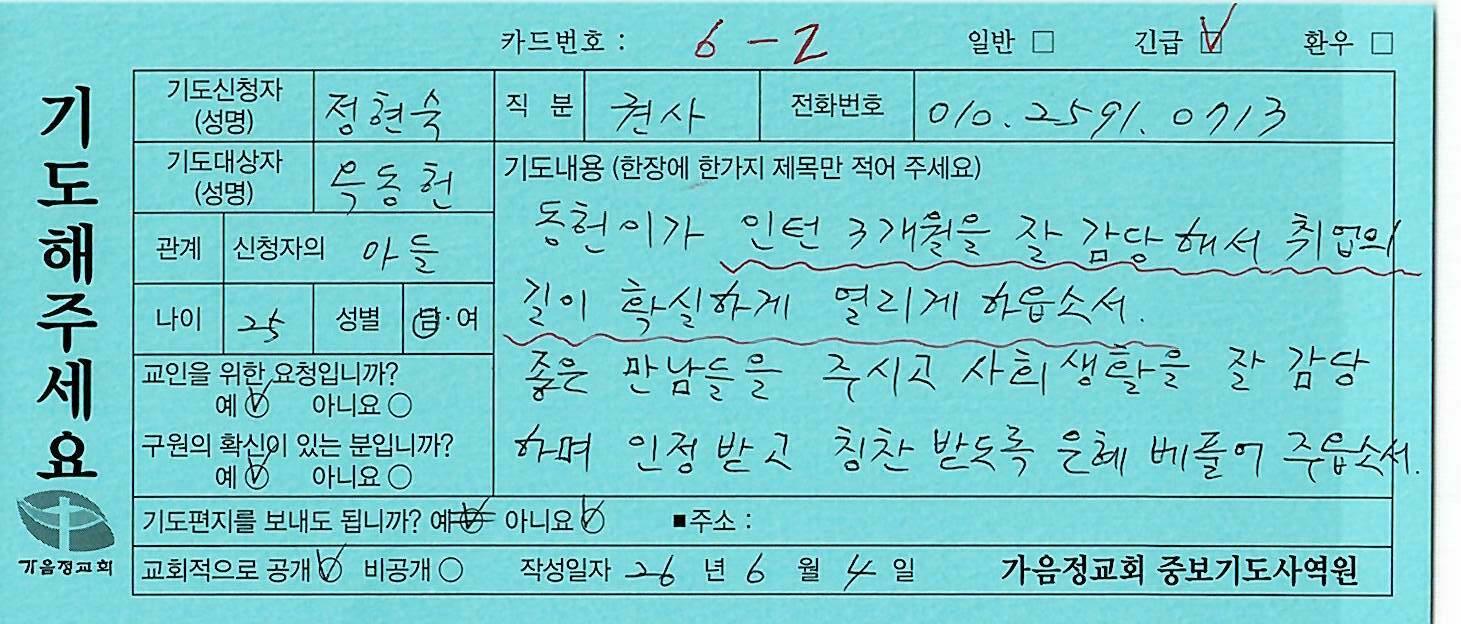 카드번호 : 6-2 일반 □ 긴급 ☑ 환우 □
기도해주세요
기도신청자 (성명) 정현숙 직 분 권사 전화번호 010.2591.0713
기도대상자 (성명) 우동헌
기도내용 (한장에 한가지 제목만 적어 주세요)
동헌이가 인턴 3개월을 잘 감당해서 취업의
관계 신청자의 아들
길이 확실하게 열리게 하읍소서.
나이 25 성별 남·여
좋은 만남들을 주시고 사회생활을 잘 감당
교인을 위한 요청입니까?
예 ☑ 아니요 ○
하며 인정받고 칭찬 받도록 은혜 베풀어 주읍소서.
구원의 확신이 있는 분입니까?
예 ☑ 아니요 ○
기도편지를 보내도 됩니까? 예 아니요 ☑ ■주소 :
교회적으로 공개 ☑ 비공개 ○ 작성일자 26 년 6 월 4 일 가음정교회 중보기도사역원
가음정교회